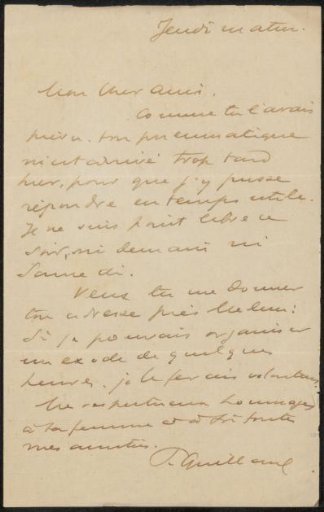 Jeudi matin.
Mon cher ami.
Comme tu l'avais
prévu. ton pneumatique
m'est arrivé trop tard
hier, pour que j'y pusse
répondre en temps utile.
Je ne suis point libre ce
soir, ni demain ni
Samedi.
Veux tu me donner
ton adresse près
Si je pouvais organiser
un exode de quelques
heures. je le ferais volontiers.
Mes respectueux hommages
à ta femme et à toi toutes
mes amitiés.